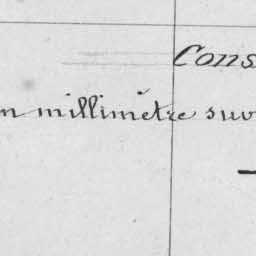 Cons
n millimètre suv